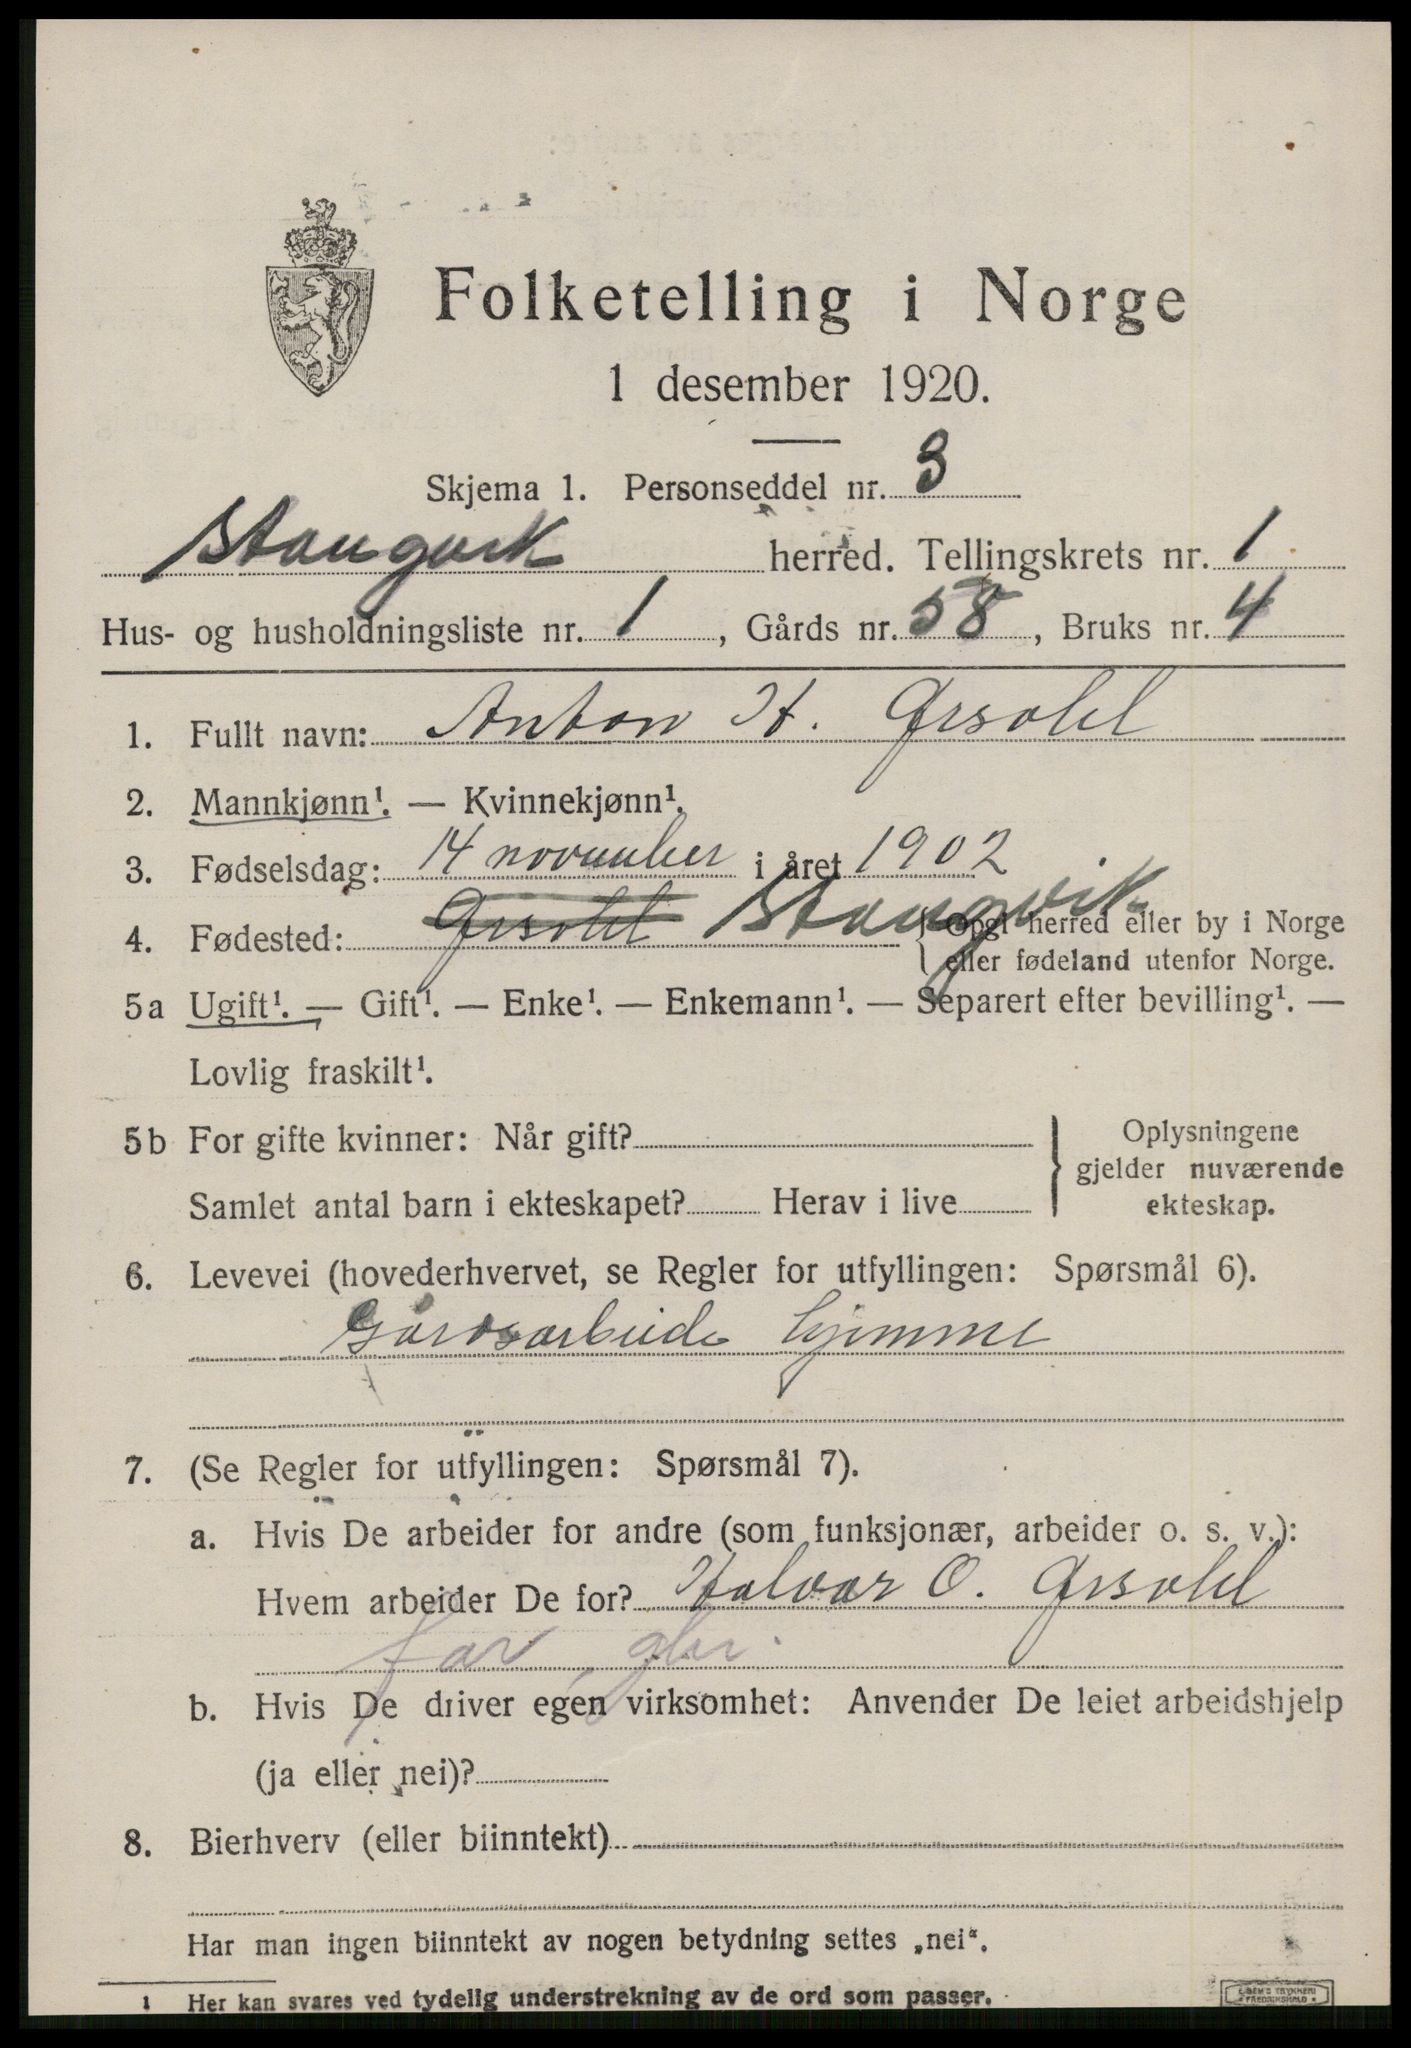 Folketelling i Norge
1 desember 1920.
Skjema 1. Personseddel nr. 3
Stangvik herred. Tellingskrets nr. 1
Hus- og husholdningsliste nr. 1, Gårds nr. 58, Bruks nr. 4
1. Fullt navn: Anton H.
2. Mannkjønn¹. — Kvinnekjønn¹.
3. Fødselsdag: 14 november i året 1902
4. Fødested: Stangvik { Opgi herred eller by i Norge
eller fødeland utenfor Norge.
5a Ugift¹. — Gift¹. — Enke¹. — Enkemann¹. — Separert efter bevilling¹. —
Lovlig fraskilt¹.
5b For gifte kvinner: Når gift? } Oplysningene
gjelder nuværende
Samlet antal barn i ekteskapet? Herav i live ekteskap.
6. Levevei (hovederhvervet, se Regler for utfyllingen: Spørsmål 6).
Gårdsarbeide hjemme
7. (Se Regler for utfyllingen: Spørsmål 7).
a. Hvis De arbeider for andre (som funksjonær, arbeider o. s. v.):
Hvem arbeider De for? Halvar O.
far, gbr.
b. Hvis De driver egen virksomhet: Anvender De leiet arbeidshjelp
(ja eller nei)?
8. Bierhverv (eller biinntekt)
Har man ingen biinntekt av nogen betydning settes „nei“.
1 Her kan svares ved tydelig understrekning av de ord som passer.